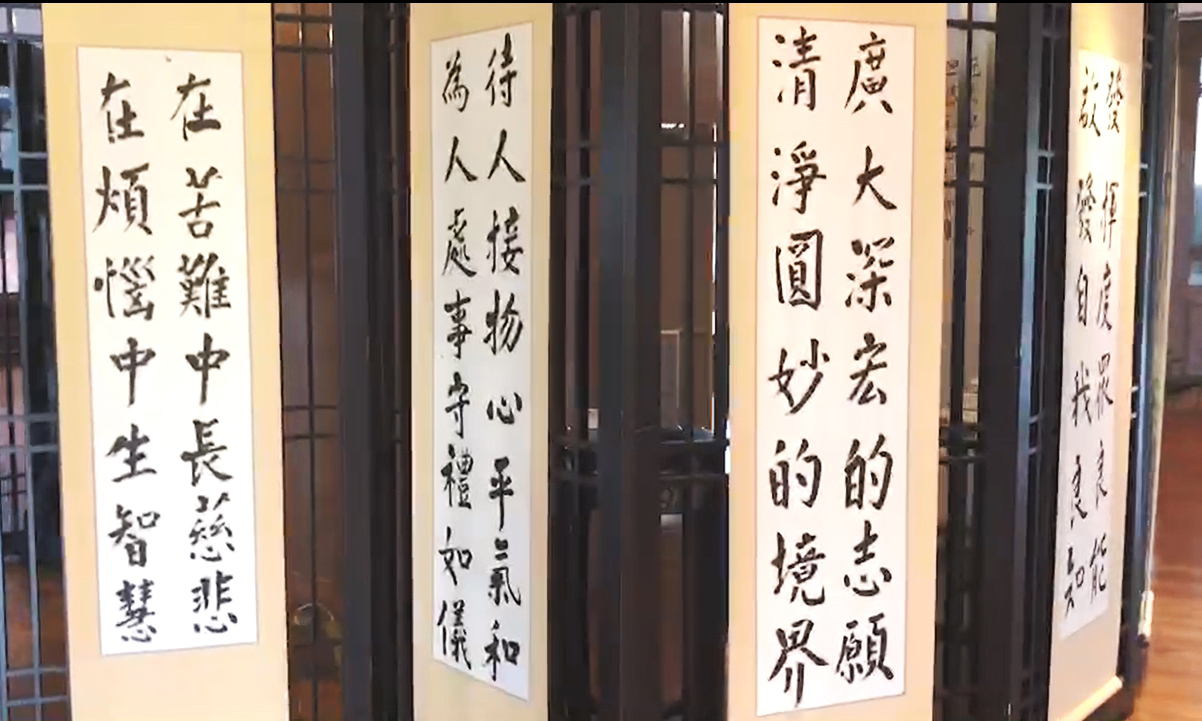 在苦難中長慈悲
在煩惱中生智慧
待人接物心平氣和
為人處事守禮如儀
廣大深宏的志願
清淨圓妙的境界
發揮度眾良能
啟發自我良知